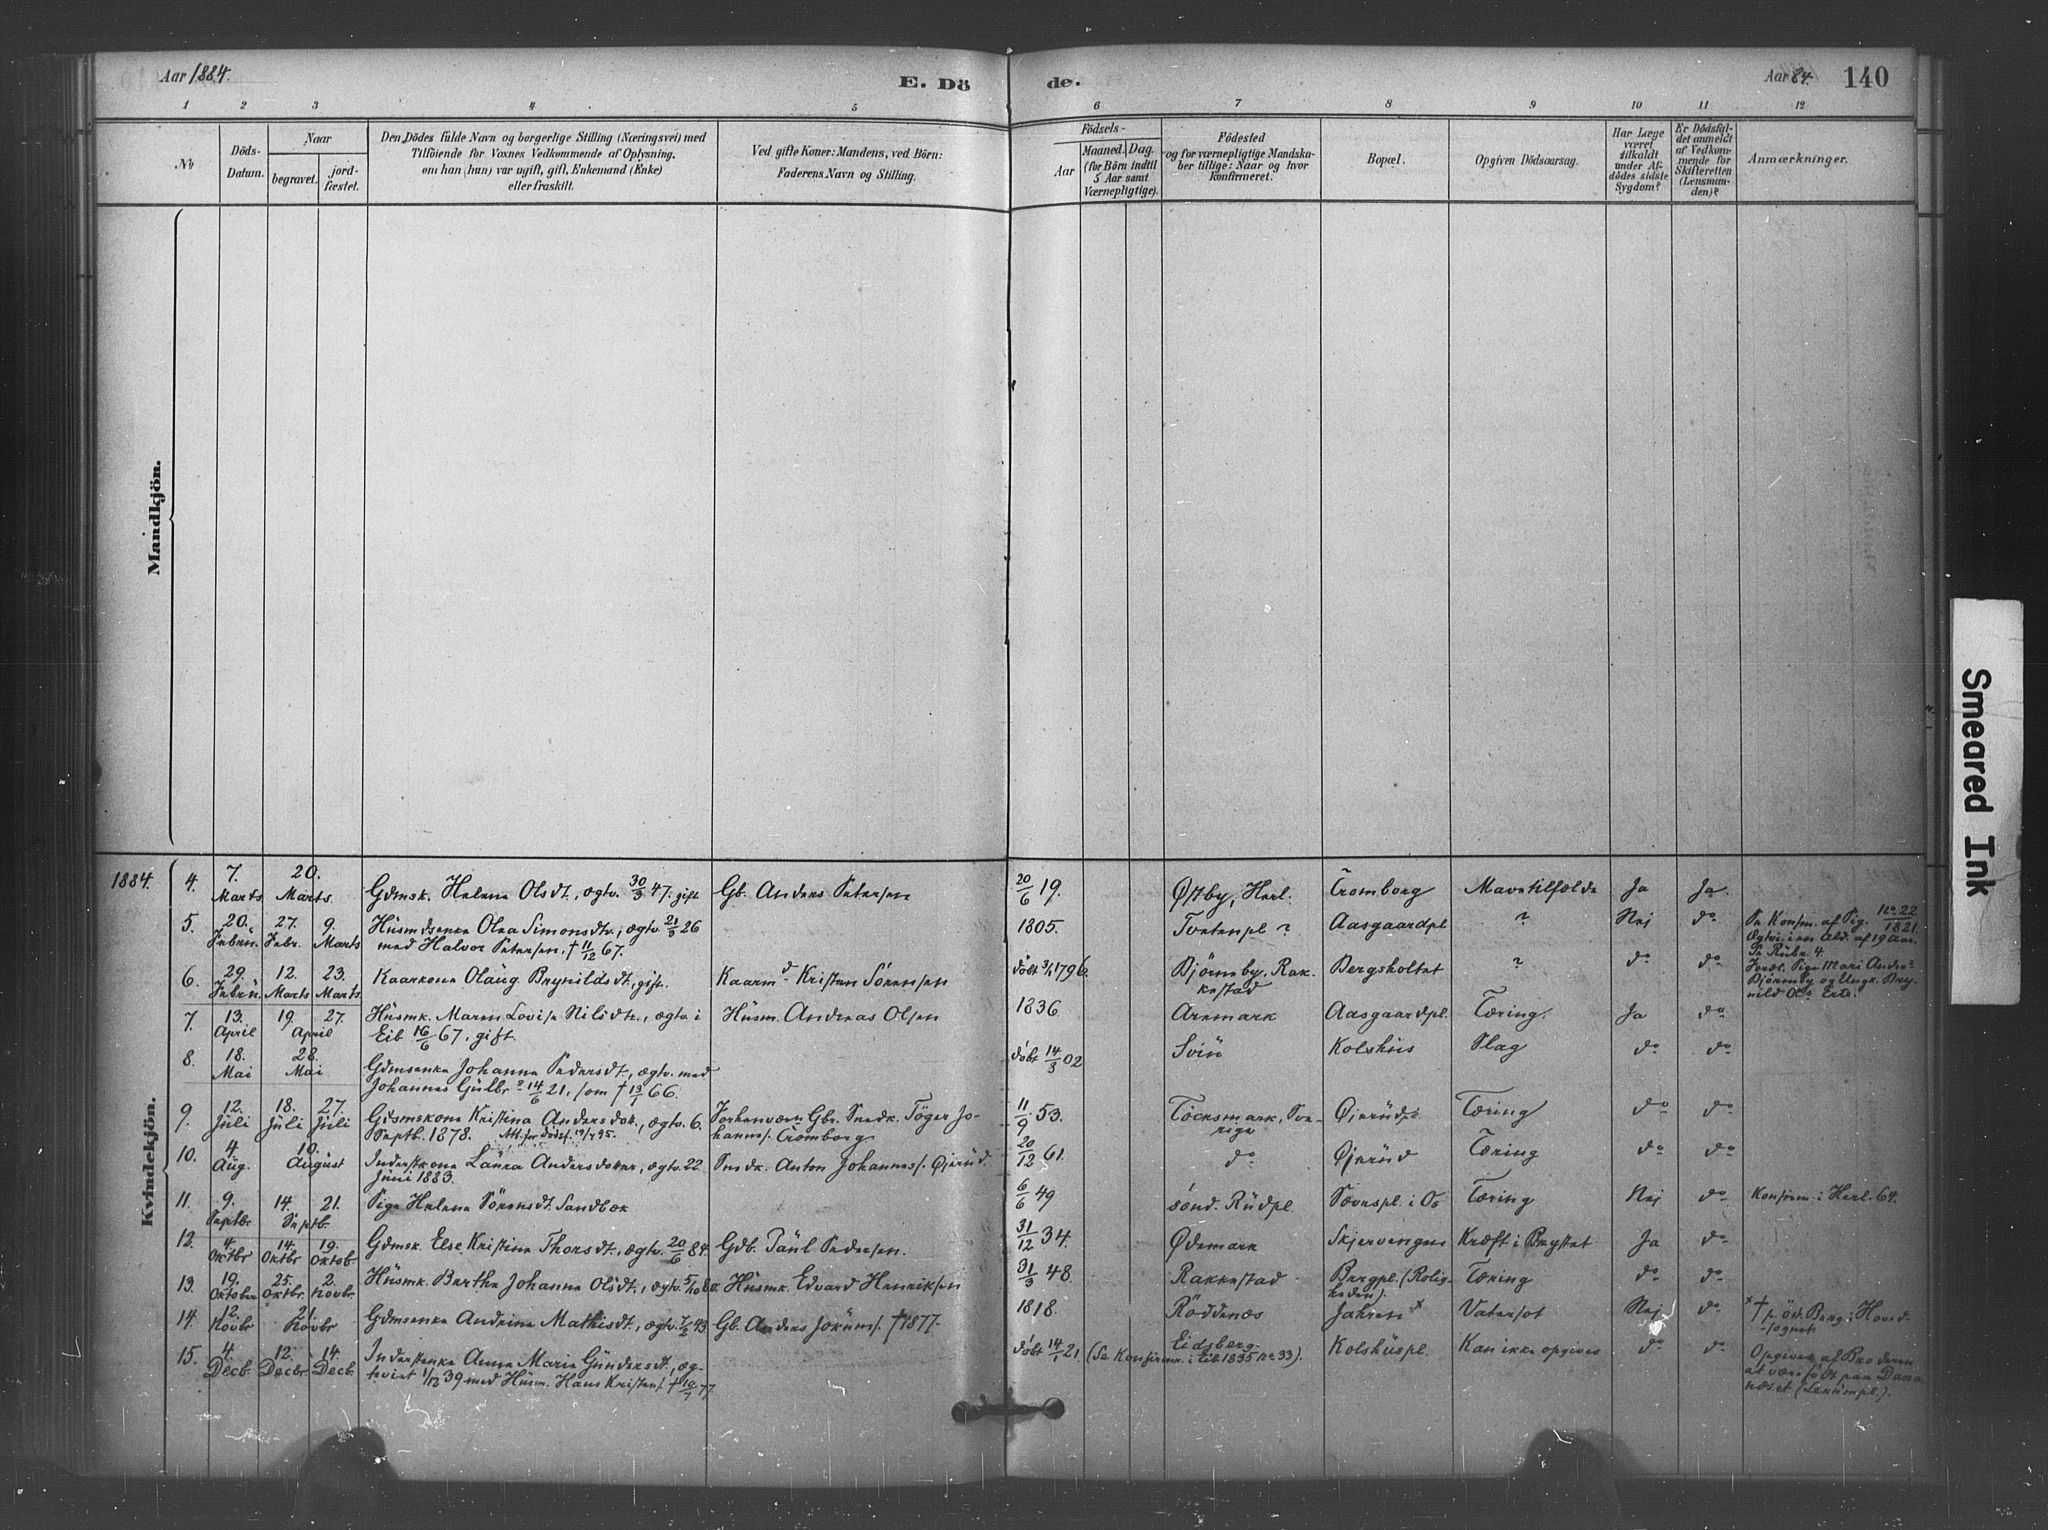 Aar 1884.
E. Dö
de.
Aar 84.
140
1 2 3 4 5 6 7 8 9 10 11 12
No
Döds-
Datum.
Naar
begravet.
jord-
fæstet.
Den Dödes fulde Navn og borgerlige Stilling (Næringsvei) med
Tilföiende for Voxnes Vedkommende af Oplysning,
om han (hun) var ugift, gift, Enkemand (Enke)
eller fraskilt.
Ved gifte Koner: Mandens, ved Börn:
Faderens Navn og Stilling.
Födsels-
Aar
Maaned. Dag.
(for Börn indtil
5 Aar samt
Værnepligtige).
Födested
og for værnepligtige Mandska-
ber tillige: Naar og hvor
konfirmeret.
Bopæl.
Opgiven Dödsaarsag.
Har Læge
været
tilkaldt
under Af-
dödes sidste
Sygdom?
Er Dödsfal-
det anmeldt
af Vedkom-
mende for
Skifteretten
(Lensman-
den)?
Anmærkninger.
Mandkjön.
Kvindekjön.
1884.
4. 7. Marts 20. Marts. Gdmsk. Helene Olsdt, ægtv. 30/3 47. gift Gb. Anders Petersen 20/6 19. Østby, Herl. Tromborg Mavetilfælde Ja Ja
5. 20. Febru. 27. Febr. 9. Marts Husmdsenke Olea Simonsdtr, ægtv. 21/3 26
med Halvor Petersen, † 11/12 67. 1805. Tvetenpl ? Aasgaardpl ? Nej do Se Konfm. af Pig. No 22/1821.
Ægtv. i en Ald. af 19 Aar.
6. 29. Febru. 12. Marts 23. Marts. Kaarkone Olaug Brynildsdt, gift. Kaarmd Kristen Sørensen döbt 3/1 1796. Bjørneby. Rak-
kestad Bergsholtet ? do do Se Rubr. 4.
Foræl. Pige Mari Anders
Bjørneby og Ungk. Bry-
nild Ols. Erte.
7. 13. April 19. 27. April Husmk. Maren Lovise Nilsdt., ægtv. i
Eib 16/6 67, gift. Husm. Andreas Olsen 1836. Aremark Aasgaardpl. Tæring. Ja do
8. 18. Mai 28. Mai Gdmsenke Johanne Pedersdt, ægtv. med
Johannes Gulbr. 14/6 21, som † 13/1 66. döbt 14/3 02 Sviü Kolshus Slag do do
9. 12. Juli 18. Juli 27. Juli Gdsmskone Kristina Andersdotr., ægtv. 6.
Septb. 1878. Att. for Dödsf. Forhenværn Gbr. Snedk. Töger Jo-
hannes. Tromborg 11/9 53. Töcksmark, Sve-
rige Øjerud Tæring do do
10. 4. Aug. 10. August Inderstkone Laura Andersdoter, ægtv. 22
Juni 1883. Snedk. Anton Johannes. Øjerud. 20/12 61. do Øjerud Tæring do do
11. 9. Septbr 14. 21. Septb. Pige Helene Sörensdt Sandbæk 6/6 49 sönd. Rudpl. Sævespl. i Os Tæring Nej do Konfirm. i Herl. 64.
12. 4. Oktbr 14. Oktbr 19. Oktob. Gdmsk. Else Kristine Thorsdt, ægtv. 20/6 84. Gdb. Paul Pedersen. 31/12 34. Ødemark Skjervengen Kræft i Brystet Ja do
13. 19. Oktober 25. Oktbr. 2. Novbr. Husmk. Berthe Johanne Olsdt., ægtv. 5/10 80. Husmk. Edvard Henriksen 31/3 48. Rakkestad Bergpl. (Rolig-
heden). Tæring do do
14. 12. Novbr 21. Novbr Gdmsenke Andrine Mathisdt, ægtv. 7/2 43 Gb. Anders Jokums. † 1877. 1818. Röddenæs Jahren x Vatersot Nej do x † p. öd. Berg i Hoved-
sognet
15. 4. Decb. 12. Decbr. 14. Decb. Inderstenke Anne Marie Gundersdt., æg-
tviet 1/12 39 med Husm. Hans Kristens. † 10/7 77 döbt 14/1 21 (Se Konfirmr. i Eib 1835 No 33). Eidsberg Kolshuspl. Kan ikke opgives do do Opgives af Broderen
at være født paa Dana
næset (Lekumpl.).
Smeared Ink